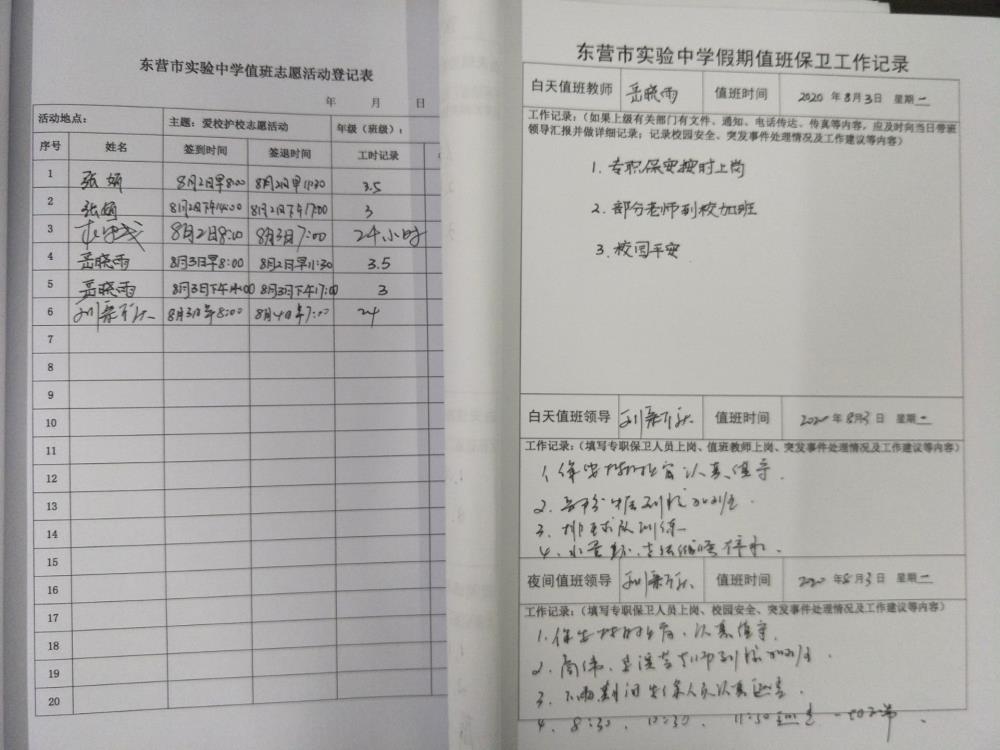 东营市实验中学值班志愿活动登记表
年 月 日
活动地点： 主题：爱校护校志愿活动 年级（班级）：
序号 姓名 签到时间 签退时间 工时记录
1 张娟 8月2日早8:00 8月2日早11:30 3.5
2 张娟 8月2日下午14:00 8月2日下午17:00 3
3 8月2日8:00 8月3日7:00 24小时
4 岳晓雨 8月3日早8:00 8月2日早11:30 3.5
5 岳晓雨 8月3日下午14:00 8月3日下午17:00 3
6 8月3日早8:00 8月4日早7:00 24
7
8
9
10
11
12
13
14
15
16
17
18
19
20
东营市实验中学假期值班保卫工作记录
白天值班教师 岳晓雨 值班时间 2020 年 8 月 3 日 星期一
工作记录：（如果上级有关部门有文件、通知、电话传达、传真等内容，应及时向当日带班
领导汇报并做详细记录；记录校园安全、突发事件处理情况及工作建议等内容）
1. 专职保安按时上岗
2. 部分老师到校加班
3. 校园平安
白天值班领导 值班时间 2020 年 8 月 3 日 星期一
工作记录：（填写专职保卫人员上岗、值班教师上岗、突发事件处理情况及工作建议等内容）
1. 保安按时上岗 认真值守.
2. 部分 到校加班.
3. 排球队训练
4.
夜间值班领导 值班时间 2020 年 8 月 3 日 星期一
工作记录：（填写专职保卫人员上岗、校园安全、突发事件处理情况及工作建议等内容）
1. 保安按时上岗、认真值守.
2. 教师到校加班.
3. 下雨期间安保人员认真巡查.
4. 8:30、10:30、11:30 一切正常.